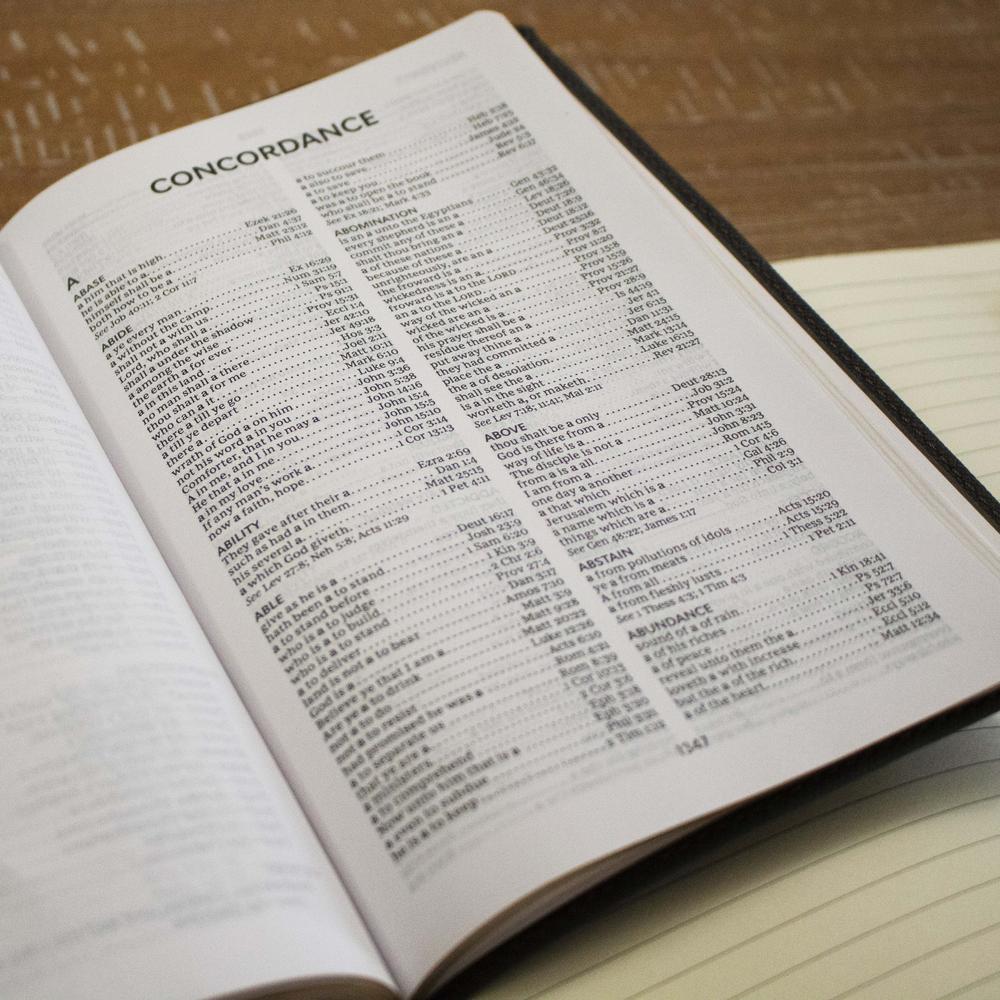 CONCORDANCE
A
ABASE
a him that is high. Ezek 21:26
he is able to a Dan 4:37
himself shall be a Matt 23:12
both how to be a Phil 4:12
See Job 40:11; 2 Cor 11:7
ABIDE
a ye every man Ex 16:29
a without the camp Num 31:19
shall not a with us 1 Sam 5:7
Lord, who shall a Ps 15:1
shall a under the shadow Ps 91:1
a among the wise Prov 15:31
the earth a for ever Eccl 1:4
a in this land Jer 42:10
no man shall a there Jer 49:18
thou shalt a for me Hos 3:3
who can a it Joel 2:11
there a till ye go Matt 10:11
a till ye depart Mark 6:10
there a Luke 9:4
wrath of God a on him John 3:36
not his word a in you John 5:38
Comforter, that he may a John 14:16
A in me, and I in you John 15:4
He that a in me John 15:5
a in my love John 15:10
If any man's work a 1 Cor 3:14
now a faith, hope 1 Cor 13:13
ABILITY
They gave after their a Ezra 2:69
such as had a in them Dan 1:4
his several a Matt 25:15
a which God giveth 1 Pet 4:11
See Lev 27:8; Neh 5:8; Acts 11:29
ABLE
give as he is a Deut 16:17
hath been a to stand Josh 23:9
a to stand before 1 Sam 6:20
who is a to judge 1 Kin 3:9
who is a to build 2 Chr 2:6
who is a to stand Prov 27:4
a to deliver Dan 3:17
land is not a to bear Amos 7:10
God is a Matt 3:9
Believe ye that I am a Matt 9:28
Are ye a to drink Matt 20:22
not a to do Luke 12:26
not a to resist Acts 6:10
had promised he was a Rom 4:21
a to separate us Rom 8:39
that ye are a 1 Cor 10:13
a ministers 2 Cor 3:6
a to comprehend Eph 3:18
Now unto him that is a Eph 3:20
a even to subdue Phil 3:21
he is a to keep 2 Tim 1:12
a to succour them Heb 2:18
a also to save Heb 7:25
a to save James 4:12
a to keep you Jude 24
was a to open the book Rev 5:3
who shall be a to stand Rev 6:17
See Ex 18:21; Mark 4:33
ABOMINATION
is an a unto the Egyptians Gen 43:32
every shepherd is an a Gen 46:34
commit any of these a Lev 18:26
shalt thou bring an a Deut 7:26
a of these nations Deut 18:9
because of these a Deut 18:12
unrighteously, are an a Deut 25:16
the froward is a Prov 3:32
wickedness is an a Prov 8:7
froward is a to the LORD Prov 11:20
an a to the LORD Prov 15:8
way of the wicked an a Prov 15:9
wicked are an a Prov 15:26
of the wicked is a Prov 21:27
his prayer shall be a Prov 28:9
residue thereof an a Is 44:19
put away thine a Jer 4:1
they had committed a Jer 6:15
place the a Dan 11:31
the a of desolation Matt 24:15
shall see the a Mark 13:14
is a in the sight Luke 16:15
worketh a, or maketh Rev 21:27
See Lev 7:18; 11:41; Mal 2:11
ABOVE
thou shalt be a only Deut 28:13
God is there from a Job 31:2
way of life is a Prov 15:24
The disciple is not a Matt 10:24
from a is a all John 3:31
I am from a John 8:23
one day a another Rom 14:5
a that which 1 Cor 4:6
Jerusalem which is a Gal 4:26
a name which is a Phil 2:9
things which are a Col 3:1
See Gen 48:22; James 1:17
ABSTAIN
a from pollutions of idols Acts 15:20
ye a from meats Acts 15:29
A from all 1 Thess 5:22
a from fleshly lusts 1 Pet 2:11
See 1 Thess 4:3; 1 Tim 4:3
ABUNDANCE
sound of a of rain 1 Kin 18:41
a of his riches Ps 52:7
a of peace Ps 72:7
reveal unto them the a Jer 33:6
loveth a with increase Eccl 5:10
but the a of the rich Eccl 5:12
a of the heart Matt 12:34
1347